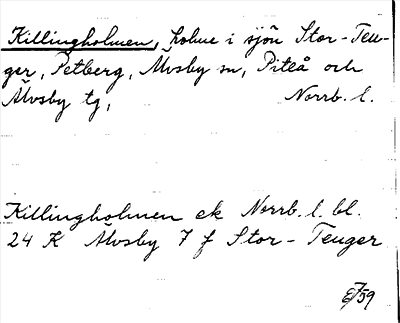 Killingholmen, holme i sjön Stor-Teu-
ger, Petberg, Älvsby sn, Piteå och
Älvsby tg, Norrb. l.
Killingholmen ek Norrb. l. bl.
24 K Älvsby 7 f Stor-Teuger